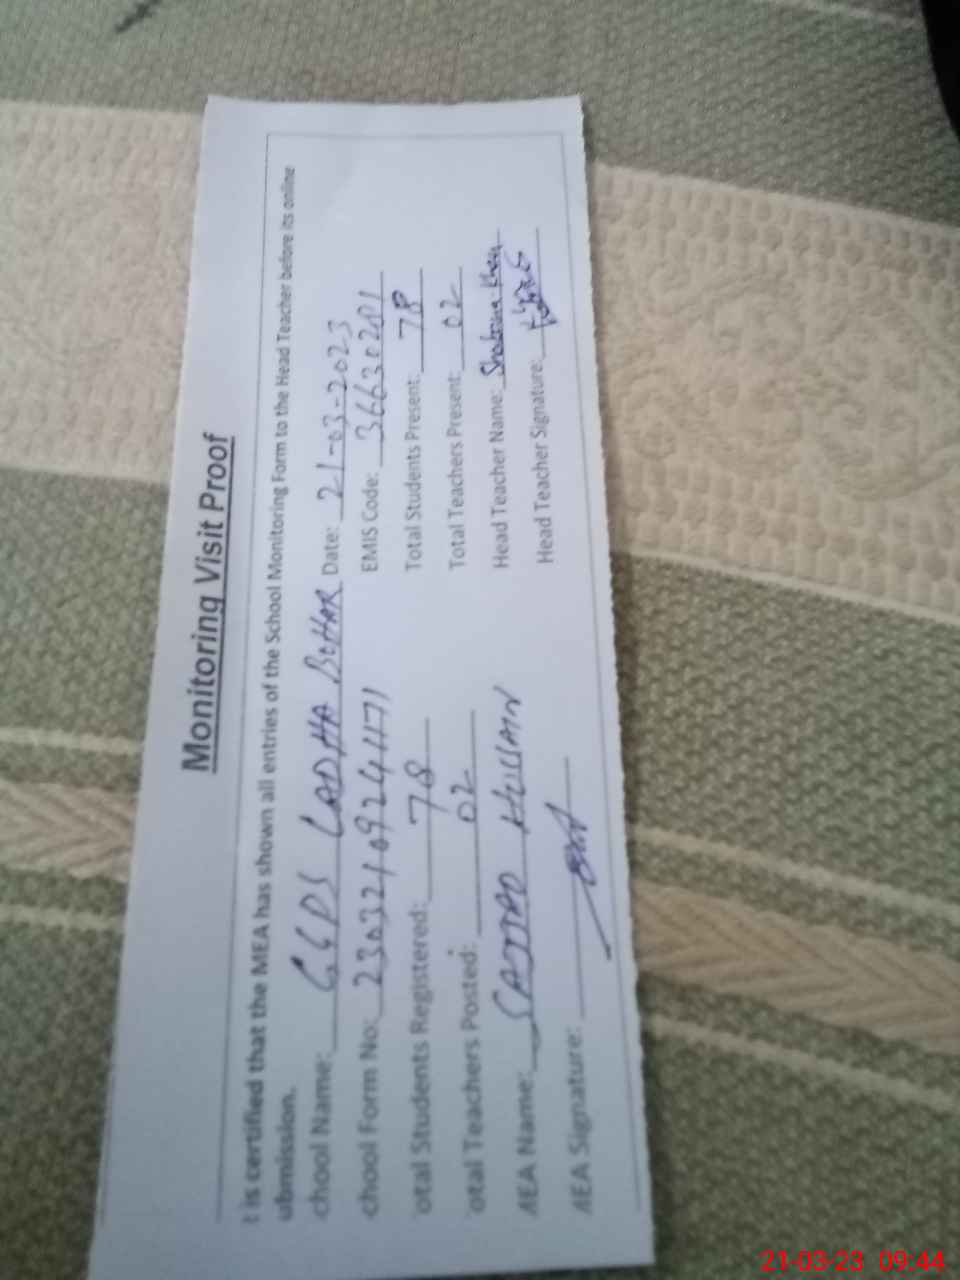 Monitoring Visit Proof
t is certified that the MEA has shown all entries of the School Monitoring Form to the Head Teacher before its online
ubmission.
chool Name: GGPS LADHA BOHAR Date: 21-03-2023
chool Form No: 230321092441171 EMIS Code: 36630281
otal Students Registered: 78 Total Students Present: 78
otal Teachers Posted: 02 Total Teachers Present: 02
MEA Name: SAJJAD HUSSAIN Head Teacher Name: Shabana
MEA Signature: Head Teacher Signature:
21-03-23 09:44